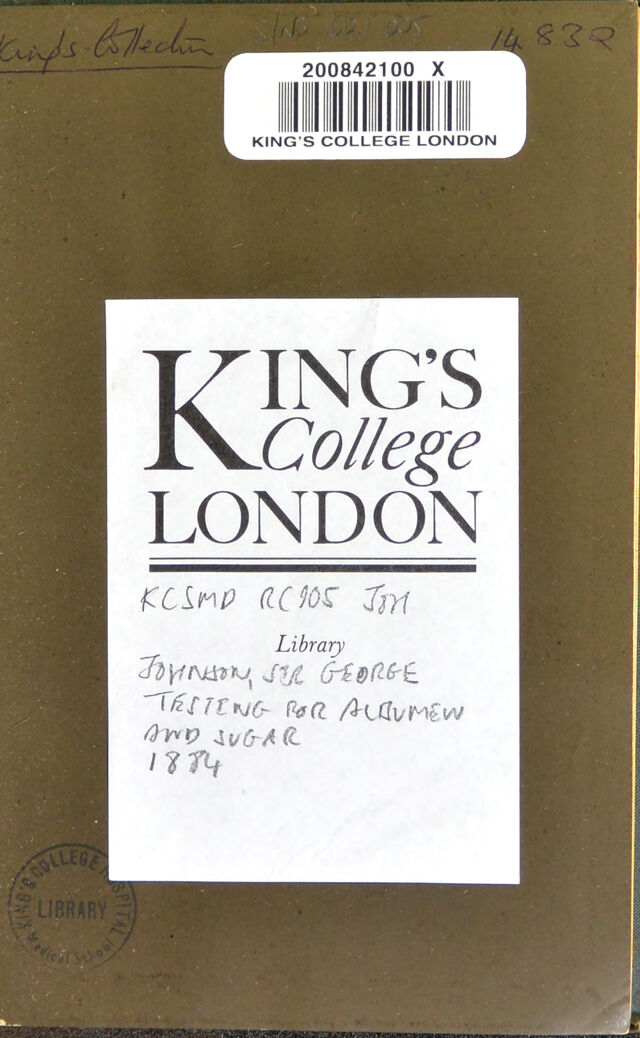 King's Collection
14832
200842100 X
KING'S COLLEGE LONDON
KING'S
College
LONDON
KCSMD RC905 JOH
Library
JOHNSON, SIR GEORGE
TESTING FOR ALBUMEN
AND SUGAR
1884
KING'S COLLEGE HOSPITAL
LIBRARY
Medical School